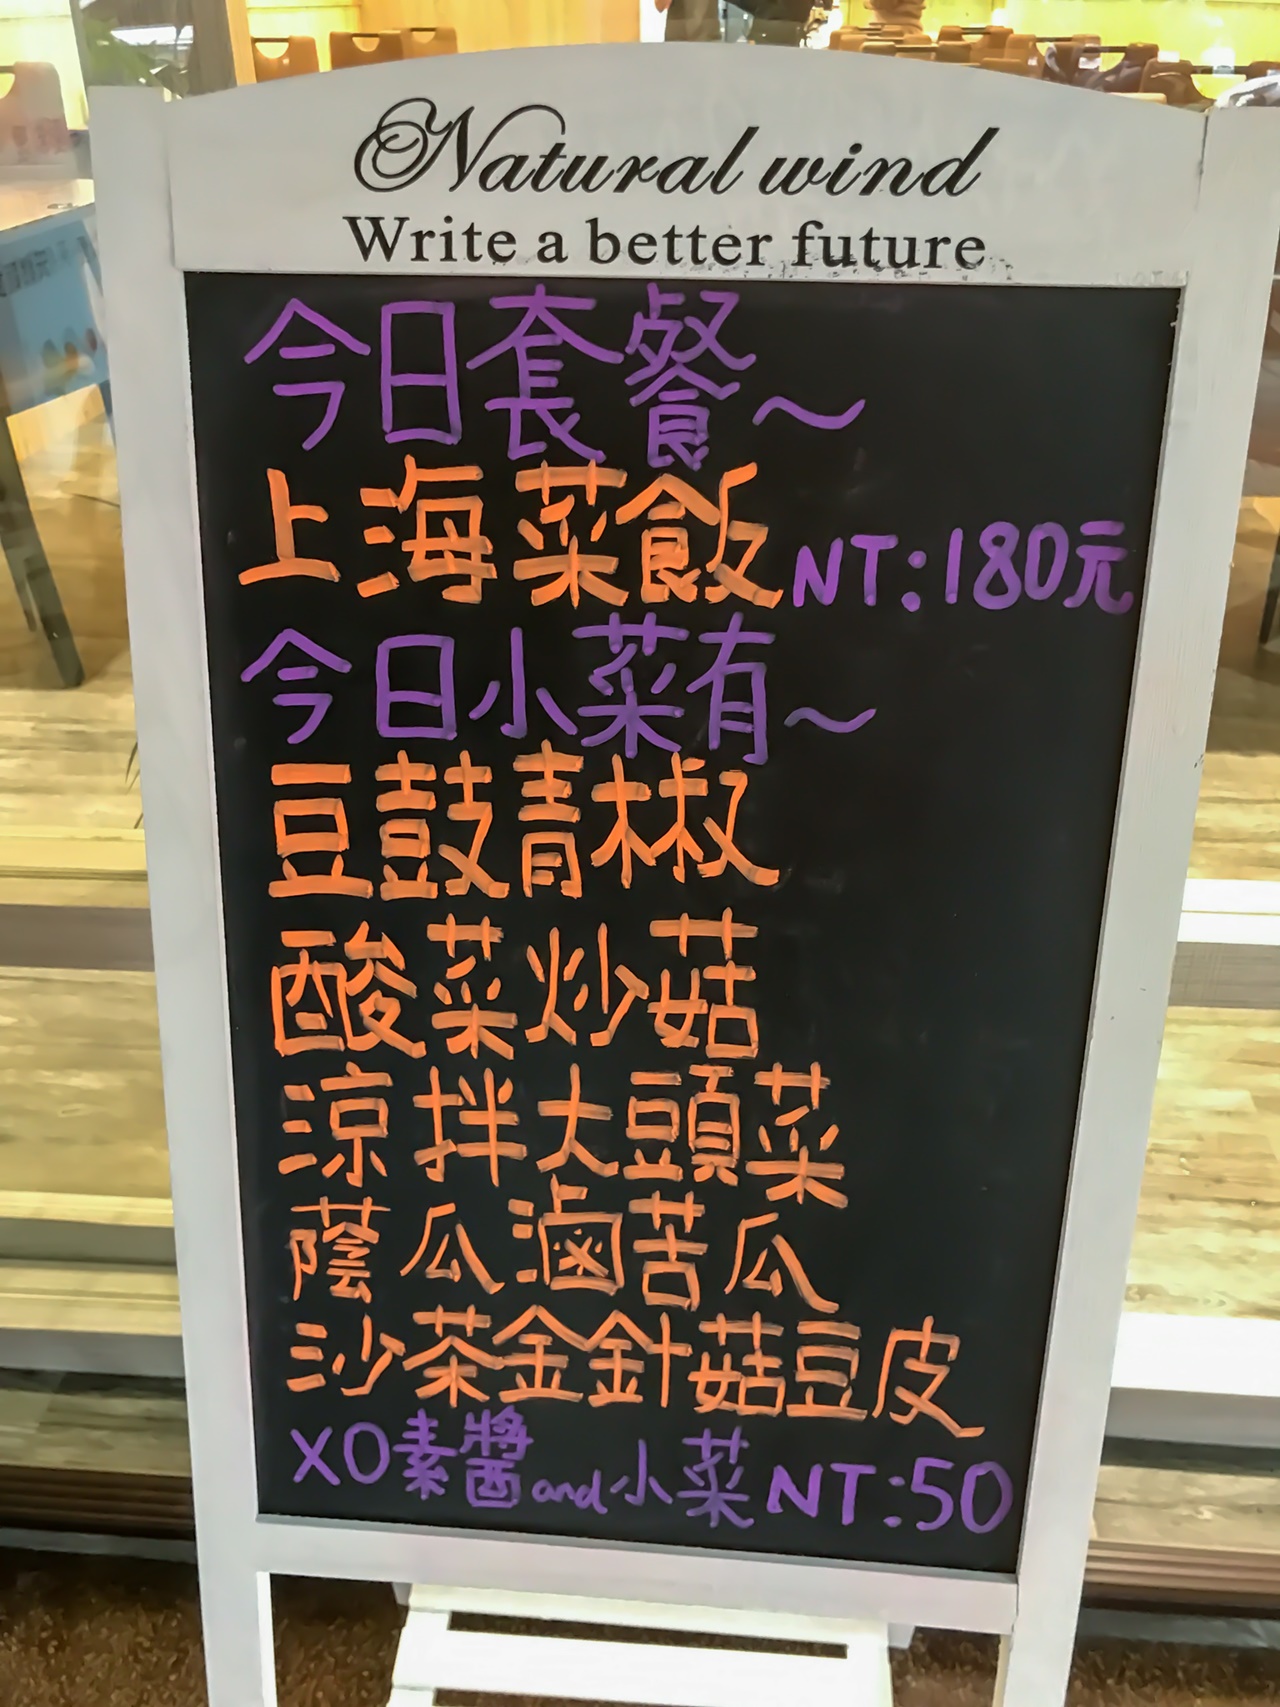 Natural wind
Write a better future
今日套餐～
上海菜飯 NT:180元
今日小菜有～
豆鼓青椒
酸菜炒菇
涼拌大頭菜
蔭瓜滷苦瓜
沙茶金針菇豆皮
XO素醬and小菜NT:50